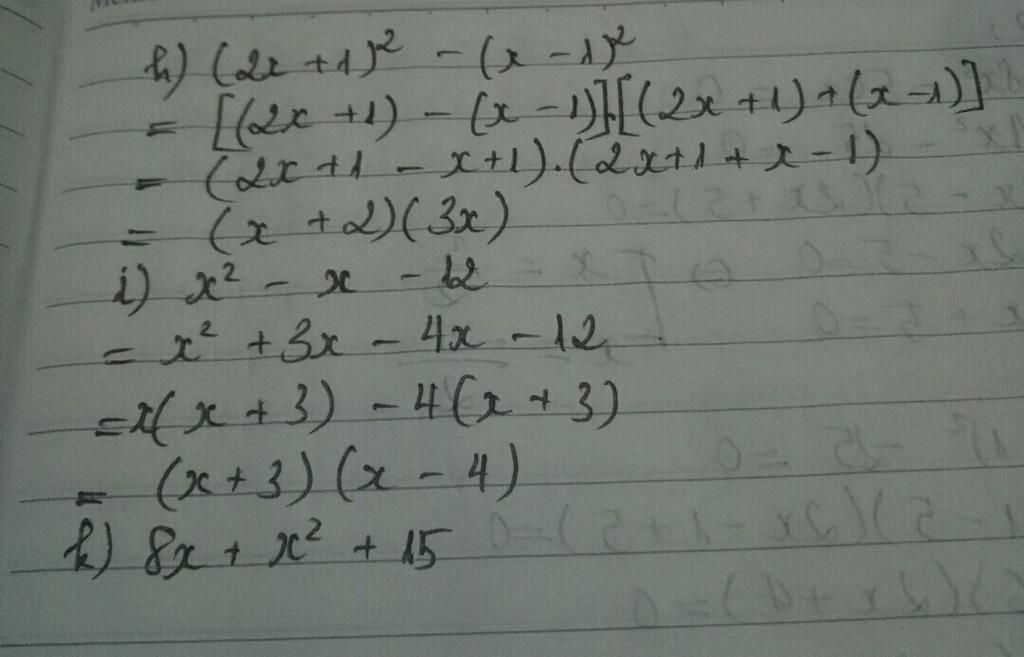 h) (2x + 1)² - (x - 1)²
= [(2x + 1) - (x - 1)].[(2x + 1) + (x - 1)]
= (2x + 1 - x + 1).(2x + 1 + x - 1)
= (x + 2)(3x)
i) x² - x - 12
= x² + 3x - 4x - 12
= x(x + 3) - 4(x + 3)
= (x + 3)(x - 4)
k) 8x + x² + 15